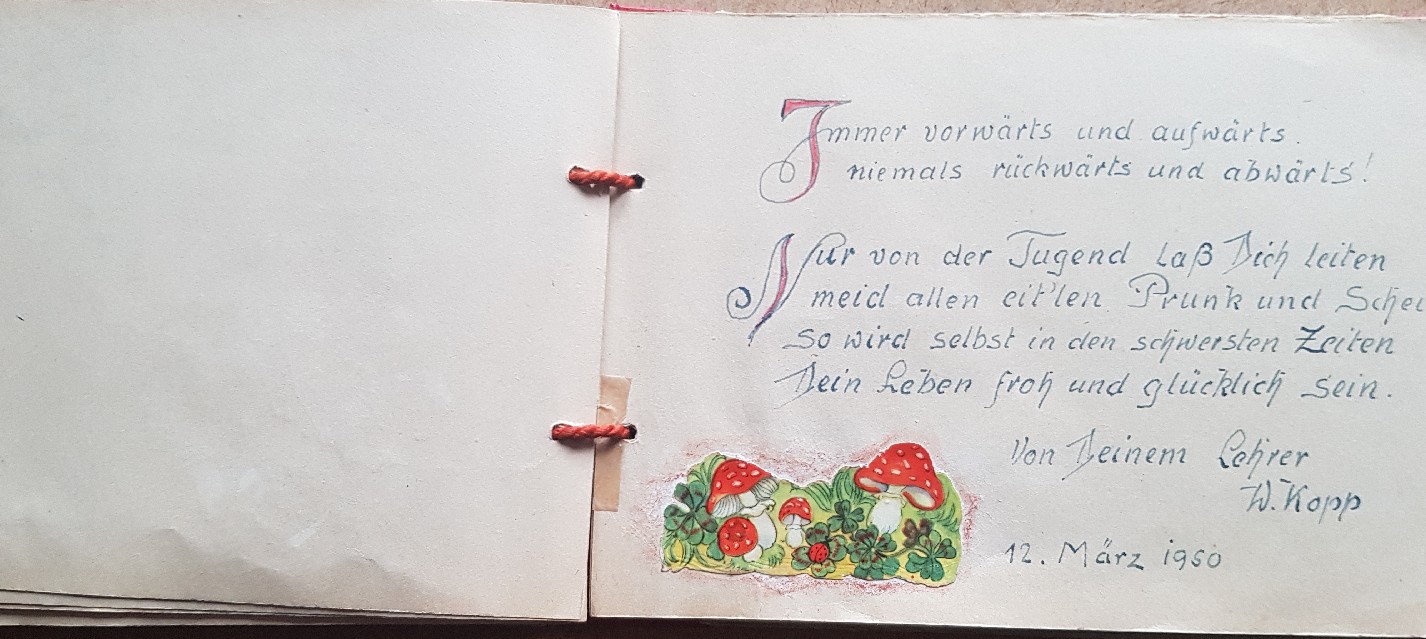 Immer vorwärts und aufwärts.
niemals rückwärts und abwärts!
Nur von der Jugend laß Dich leiten
meid allen eit'len Prunk und
So wird selbst in den schwersten Zeiten
Dein Leben froh und glücklich sein.
Von Deinem Lehrer
W. Kopp
12. März 1950